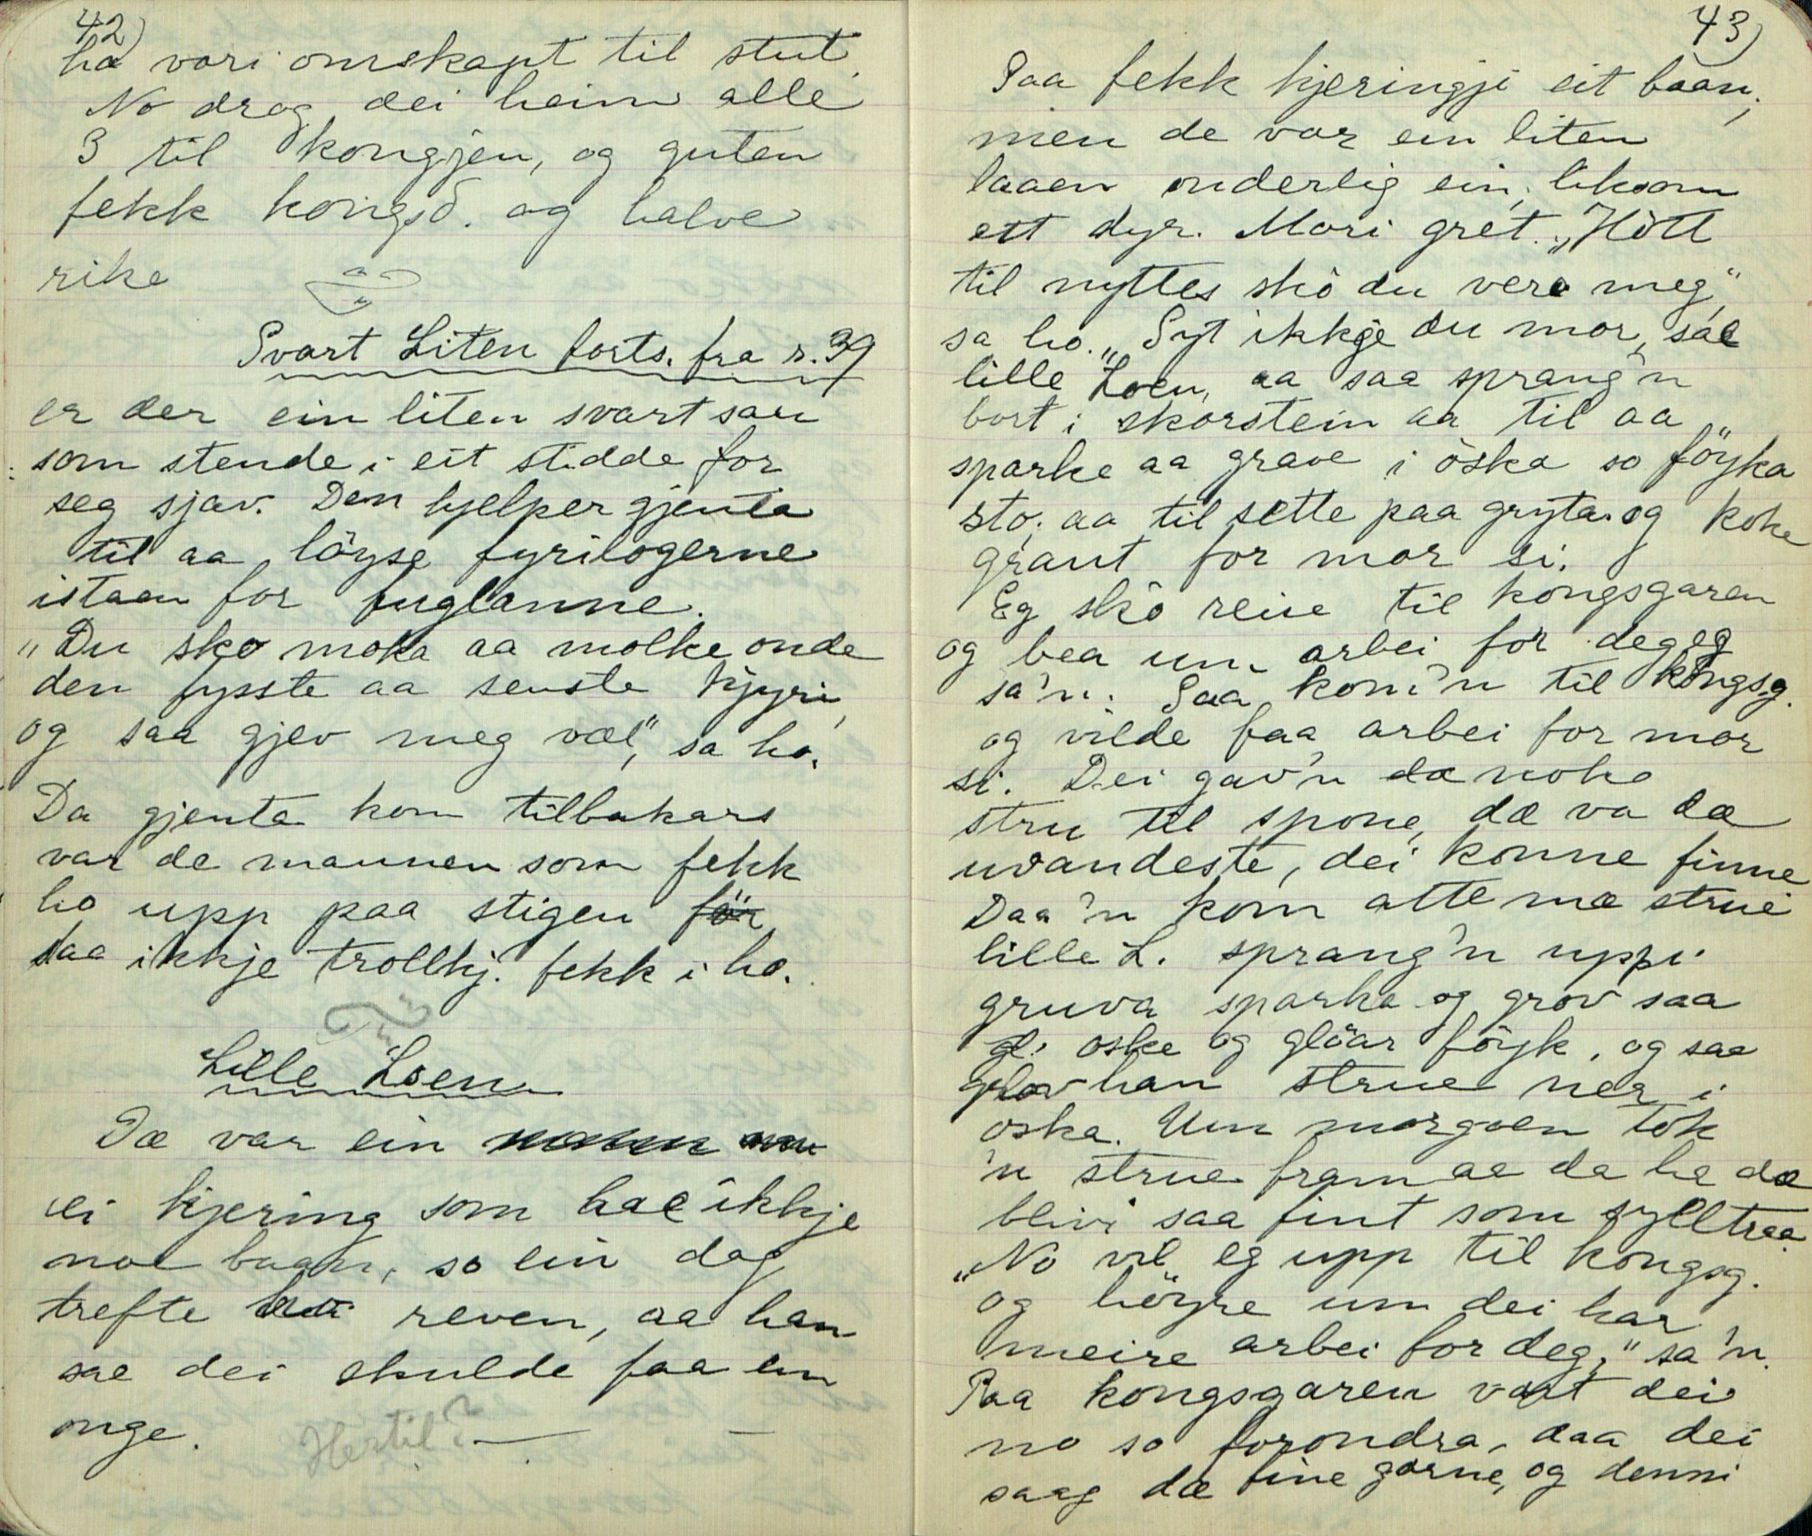 42)
ha vori omskapt til stut.
No drog dei heim alle
3 til kongjen, og guten
fekk kongsd. og halve
rike
Svart Liten forts. fra s. 39
er der ein liten svart sau
som stende i eit stidde for
seg sjav. Den hjelper gjenta
til aa löyse fyrilogerne
istaen for fuglanne.
"Du sko moka aa molke onde
den fysste aa senste kjyri,
og saa gjev meg væl", sa ho.
Da gjenta kom tilbakars
var de mannen som fekk
ho upp paa stigen för
daa ikkje trollkj. fekk i ho.
Lille Loen
Dæ var ein mann
ei kjering som hae ikkje
noe baan, so ein dag
trefte reven, aa han
sae dei skulde faa en
onge.
Hertil?
43)
Saa fekk kjeringji eit baan,
men de var ein liten
laaen onderlig ein, liksom
ett dyr. Mori gret. "Hött
til nyttes skò du vere meg",
sa ho. "Syt ikkje du mor, sae
lille Loen, aa saa sprang'n
bort i skorstein aa til aa
sparke aa grave i öska so föyka
sto, aa til sette paa gryta og koke
graut for mor si.
Eg skò reise til kongsgaren
og bea um arbei for deg eg
sa'n. Saa kom'n til kongsg.
og vilde faa arbei for mor
si. Dei gav'n da noko
stru til spone, dæ va dæ
uvandeste, dei konne finne
Daa'n kom atte mæ strue
lille L. sprang'n uppi
gruva sparka og grov saa
oske og glöar föyk, og saa
grov han strue ner i
oska. Um morgoen tok
'n strue fram ae da he dæ
blivi saa fint som sylltraa.
"No vil eg upp til kongsg.
og höyre um dei har
meire arbei for deg," sa'n.
Paa kongsgaren vart dei
no so forondra, daa dei
saag dæ fine garne, og denni